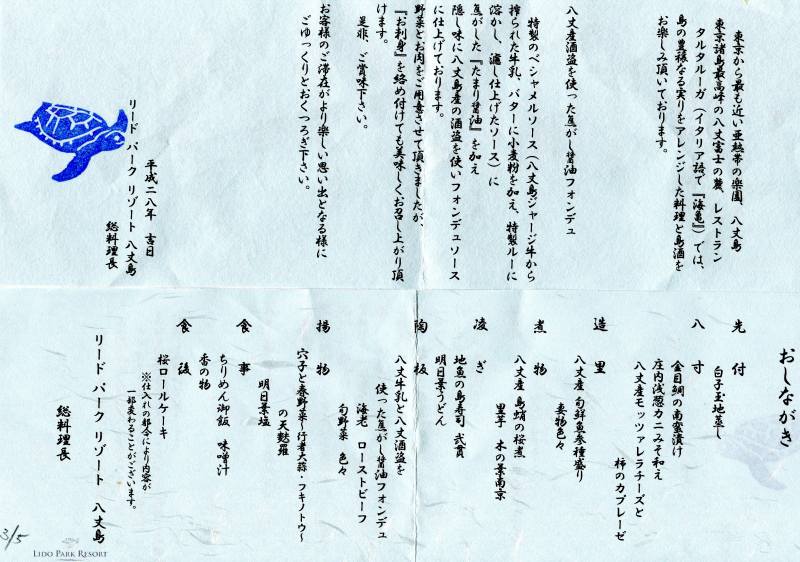 東京から最も近い亜熱帯の楽園、八丈島
東京諸島最高峰の八丈富士の麓、レストラン
タルタルーガ（イタリア語で『海亀』）では、
島の豊穣なる実りをアレンジした料理と島酒を
お楽しみ頂いております。
八丈産酒盗を使った焦がし醤油フォンデュ
特製のベシャメルソース（八丈島ジャージ牛から
搾られた牛乳、バターに小麦粉を加え、特製ルーに
溶かし、濾し仕上げたソース）に
焦がした『たまり醤油』を加え
隠し味に八丈島産の酒盗を使いフォンデュソース
に仕上げております。
野菜とお肉をご用意させて頂きましたが、
『お刺身』を絡め付けても美味しくお召し上がり頂
けます。
是非、ご賞味下さい。
お客様のご滞在がより楽しい思い出となる様に
ごゆっくりとおくつろぎ下さい。
平成二八年 吉日
リード パーク リゾート 八丈島
総料理長
おしながき
先付
白子玉地蒸し
八寸
金目鯛の南蛮漬け
庄内浅葱カニみそ和え
八丈産モッツァレラチーズと
柿のカプレーゼ
造里
八丈産 旬鮮魚参種盛り
妻物色々
煮物
八丈産 島蛸の桜煮
里芋 木の葉南京
凌ぎ
地魚の島寿司 弐貫
明日葉うどん
陶板
八丈牛乳と八丈酒盗を
使った焦がし醤油フォンデュ
海老 ローストビーフ
旬野菜 色々
揚物
穴子と春野菜～行者大蒜・フキノトウ～
の天麩羅
明日葉塩
食事
ちりめん御飯 味噌汁
香の物
食後
桜ロールケーキ
※仕入れの都合により内容が
一部変わることがございます。
リード パーク リゾート 八丈島
総料理長
3/5
LIDO PARK RESORT